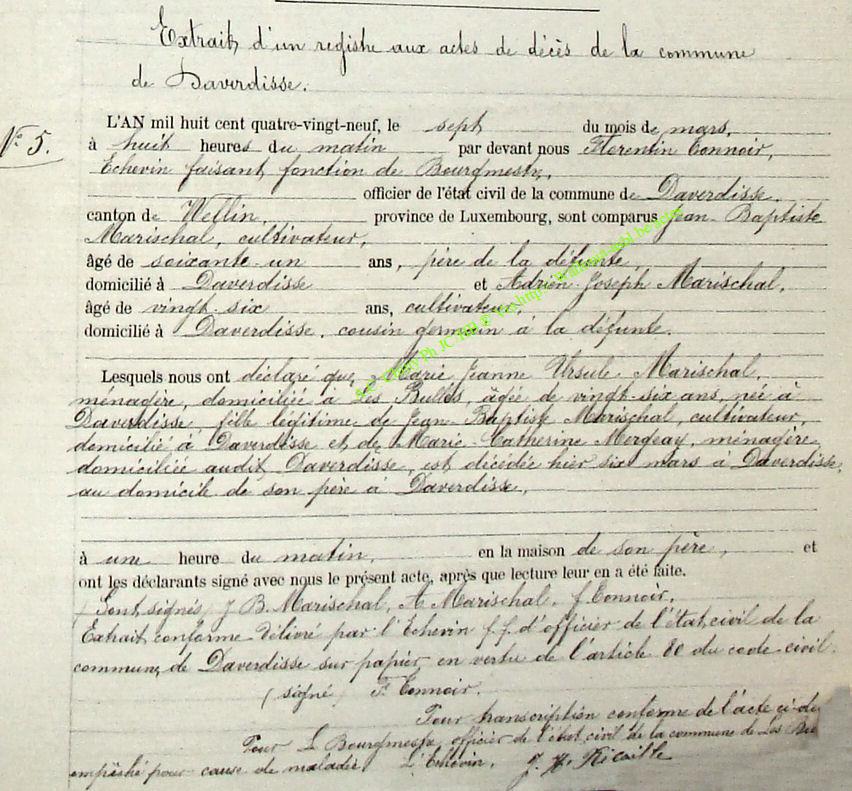 Extrait d'un registre aux actes de décès de la commune
de Daverdisse.
N° 5.
L'AN mil huit cent quatre-vingt-neuf, le sept du mois de mars,
à huit heures du matin par devant nous Florentin Connoir,
Echevin faisant fonction de Bourgmestre,
officier de l'état civil de la commune de Daverdisse,
canton de Wellin, province de Luxembourg, sont comparus Jean-Baptiste
Marischal, cultivateur,
âgé de soixante-un ans, père de la défunte
domicilié à Daverdisse et Adrien-Joseph Marischal,
âgé de vingt-six ans, cultivateur,
domicilié à Daverdisse, cousin germain à la défunte.
Lesquels nous ont déclaré que Marie Jeanne Ursule Marischal,
ménagère, domiciliée à Les Bulles, âgée de vingt-six ans, née à
Daverdisse, fille légitime de Jean-Baptiste Marischal, cultivateur,
domicilié à Daverdisse et de Marie-Catherine Mergeay, ménagère
domiciliée audit Daverdisse, est décédée hier six mars à Daverdisse,
au domicile de son père à Daverdisse,
à une heure du matin, en la maison de son père, et
ont les déclarants signé avec nous le présent acte, après que lecture leur en a été faite.
(Sont signés) J B. Marischal, A Marischal, f Connoir.
Extrait conforme délivré par l'Echevin f.f. d'officier de l'état civil de la
commune de Daverdisse sur papier en vertu de l'article 80 du code civil.
(signé) F. Connoir.
Pour transcription conforme de l'acte ci-de
Pour L Bourgmestre officier de l'état civil de la commune de Les Bu
empêché pour cause de maladie L'Echevin, J. H.